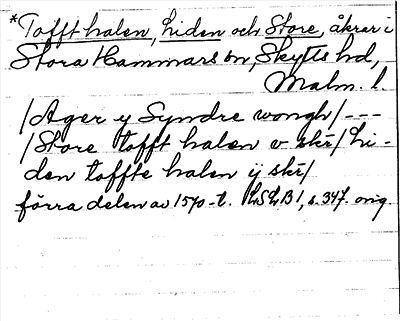 *Tofft halen, Liden och Store, åkrar i
Stora Hammars sn, Skytts hd,
Malm. l.
/Ager y Syndre wongh/ ---
/Store tofft halen v skr/ Li-
den toffte halen ij skr/
förra delen av 1570-t. LSLB 1, s. 347. orig.